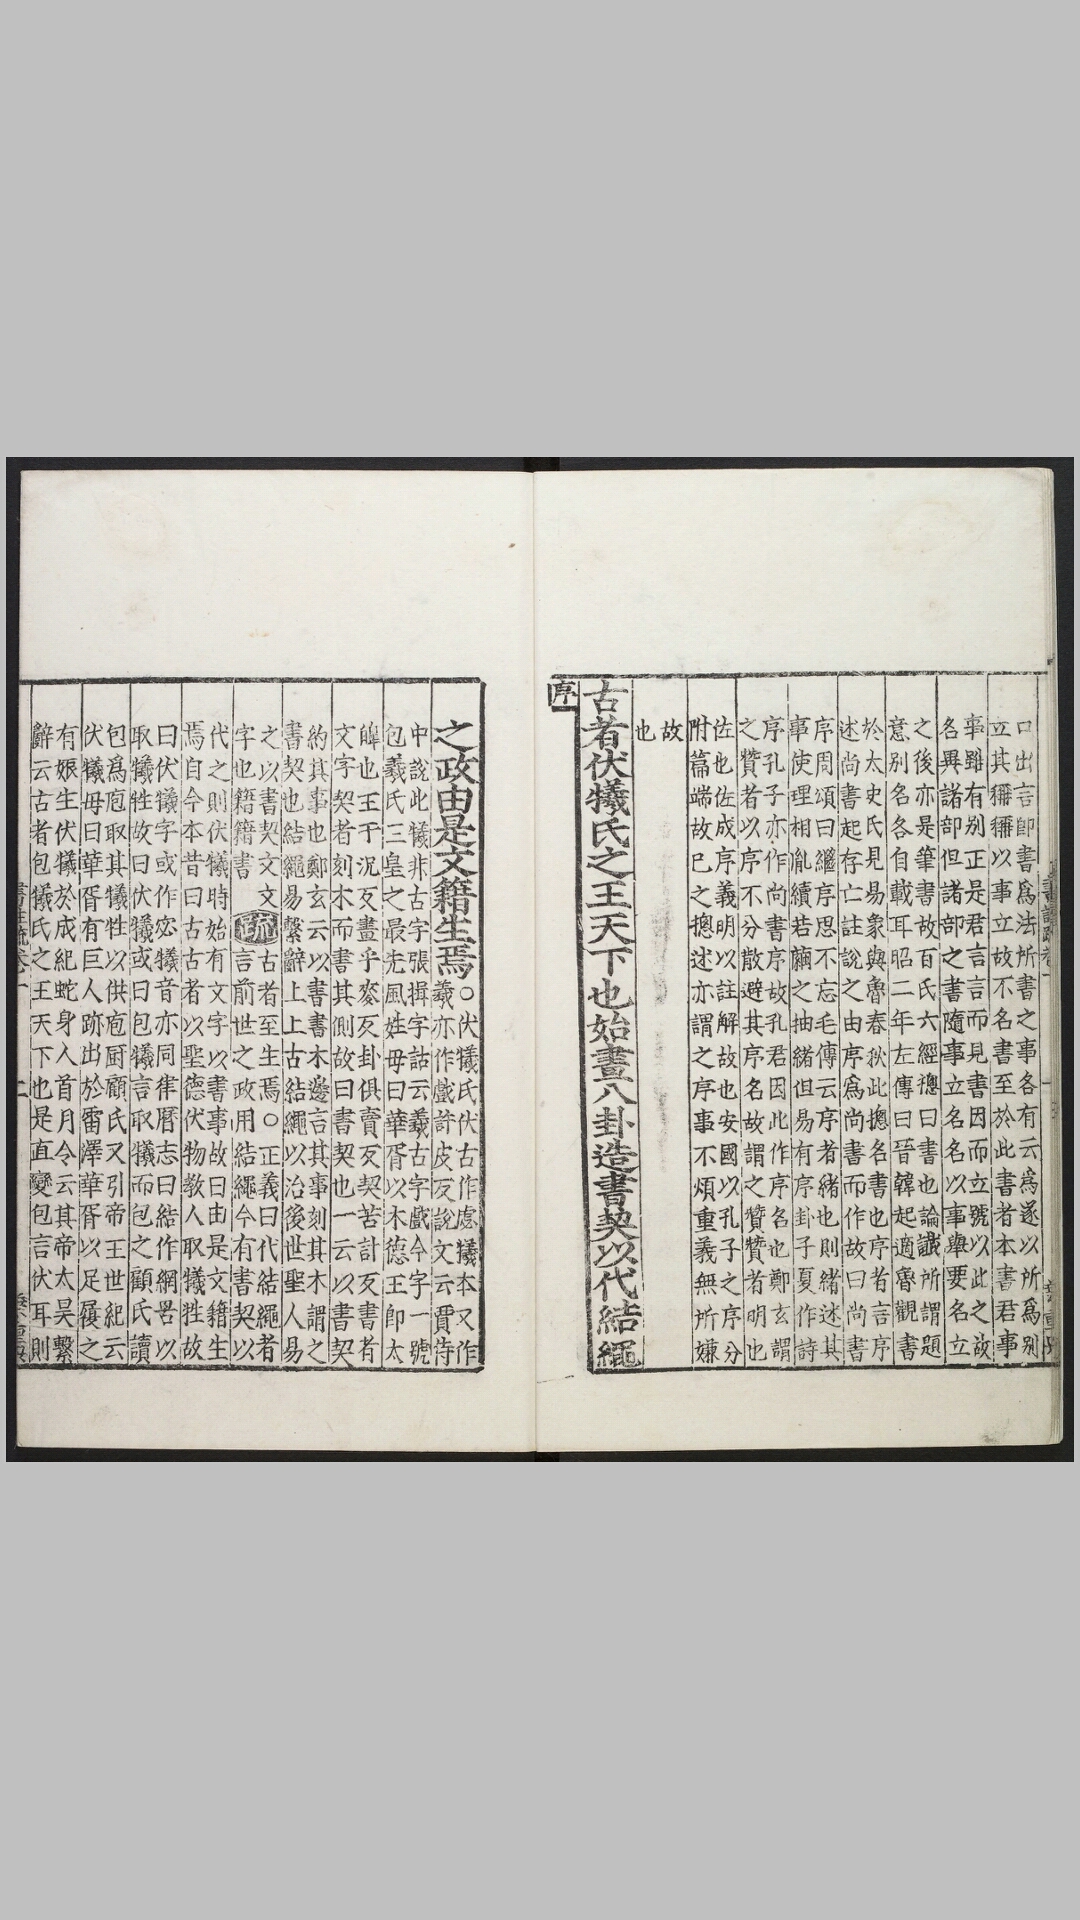 口出言即書爲法所書之事各有云爲遂以所爲別
立其稱稱以事立故不名書至於此書者本書君事
事雖有別正是君言言而見書因而立號以此之故
名異諸部但諸部之書隨事立名名以事舉要名立
之後亦是筆書故百氏六經摠曰書也論讖所謂題
意別名各自載耳昭二年左傳曰晉韓起適魯觀書
於太史氏見易象與魯春秋此摠名書也序者言序
述尚書起存亡註說之由序爲尚書而作故曰尚書
序周頌曰繼序思不忘毛傳云序者緒也則緒述其
事使理相胤續若繭之抽緒但易有序卦子夏作詩
序孔子亦作尚書序故孔君因此作序名也鄭玄謂
之贊者以序不分散避其序名故謂之贊贊者明也
佐也佐成序義明以註解故也安國以孔子之序分
附篇端故已之摠述亦謂之序事不煩重義無所嫌
故
也
古者伏犧氏之王天下也始畫八卦造書契以代結繩
序
之政由是文籍生焉○伏犧氏伏古作虙犧本又作
羲亦作戲許皮反說文云賈侍
中說此犧非古字張揖字詁云羲古字戲今字一號
包羲氏三皇之最先風姓母曰華胥以木德王即太
皥也王于況反畫乎麥反卦俱賣反契苦計反書者
文字契者刻木而書其側故曰書契也一云以書契
約其事也鄭玄云以書書木邊言其事刻其木謂之
書契也結繩易繫辭上上古結繩以治後世聖人易
之以書契文文疏古者至生焉○正義曰代結繩者
字也籍籍書言前世之政用結繩今有書契以
代之則伏犧時始有文字以書事故曰由是文籍生
焉自今本昔曰古古者以聖德伏物教人取犧牲故
曰伏犧字或作宓犧音亦同律曆志曰結作網罟以
取犧牲故曰伏犧或曰包犧言取犧而包之顧氏讀
包爲庖取其犧牲以供庖厨顧氏又引帝王世紀云
伏犧母曰華胥有巨人跡出於雷澤華胥以足履之
有娠生伏犧於成紀蛇身人首月令云其帝太昊繫
辭云古者包犧氏之王天下也是直變包言伏耳則